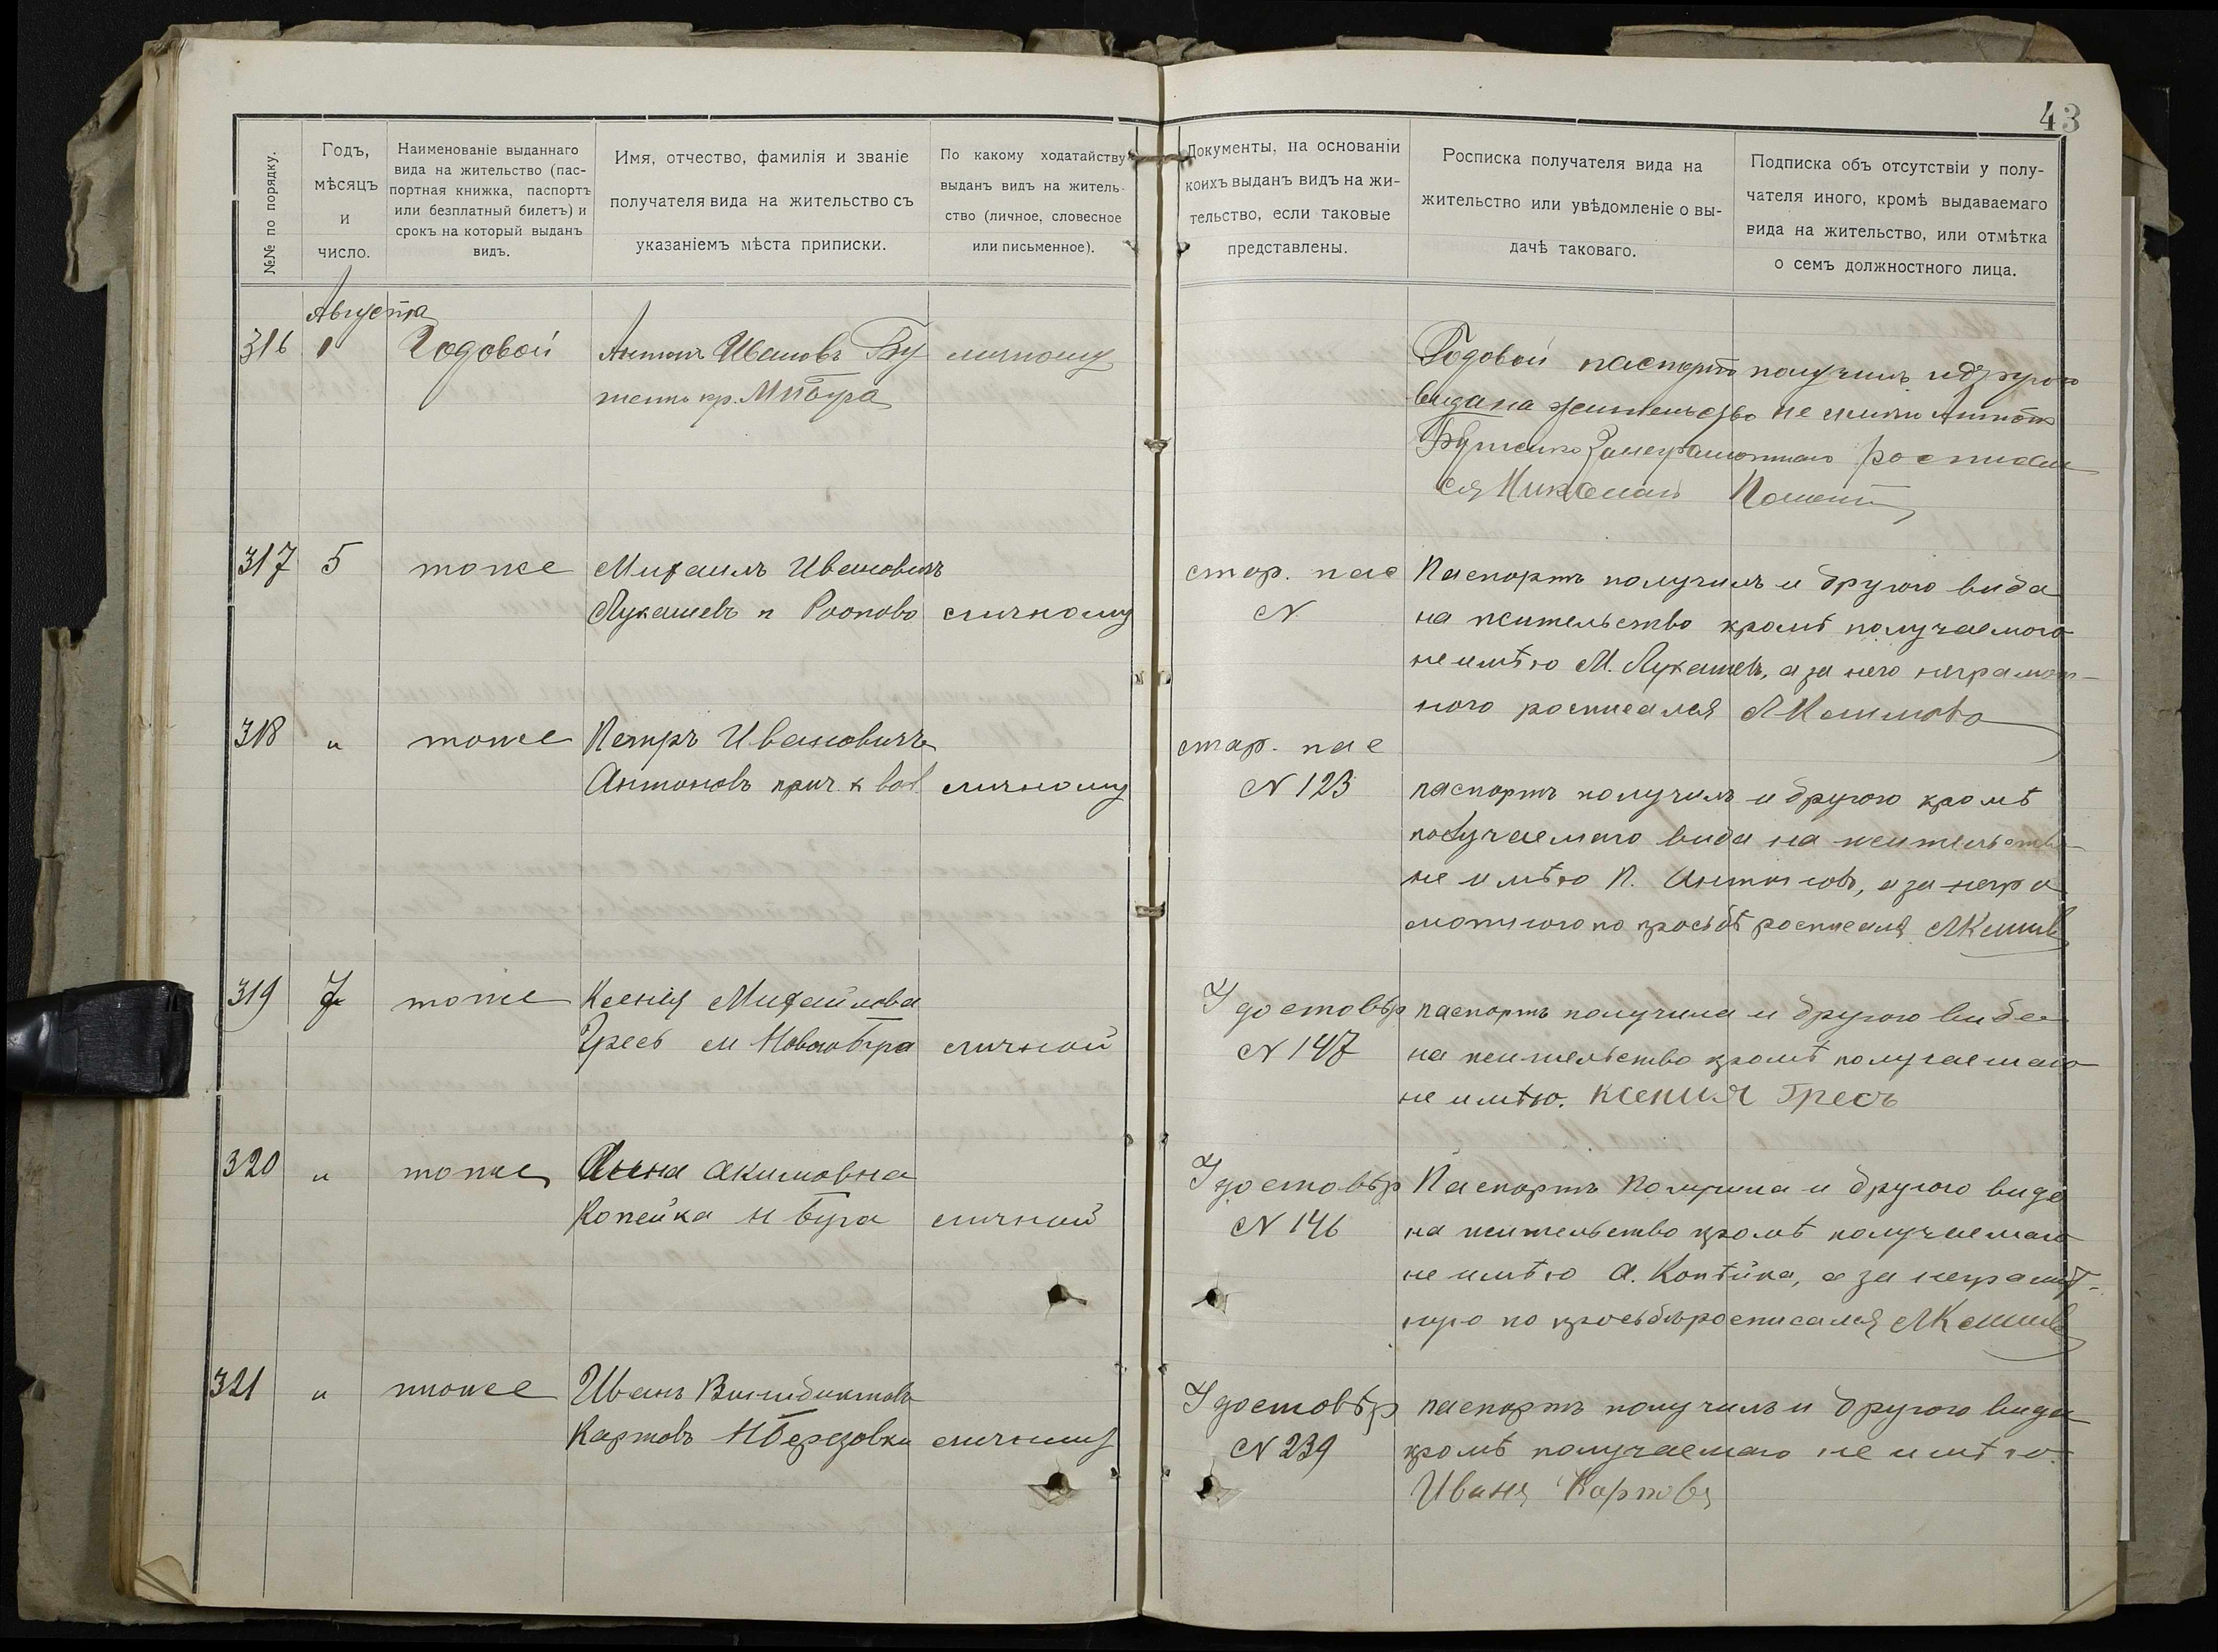 43
№№ по порядку.
Годъ,
мѣсяцъ
и
число.
Наименованіе выданнаго
вида на жительство (пас-
портная книжка, паспортъ
или безплатный билетъ) и
срокъ на который выданъ
видъ.
Имя, отчество, фамилія и званіе
получателя вида на жительство съ
указаніемъ мѣста приписки.
По какому ходатайству
выданъ видъ на житель-
ство (личное, словесное
или письменное).
Документы, на основаніи
коихъ выданъ видъ на жи-
тельство, если таковые
представлены.
Росписка получателя вида на
жительство или увѣдомленіе о вы-
дачѣ таковаго.
Подписка объ отсутствіи у полу-
чателя иного, кромѣ выдаваемаго
вида на жительство, или отмѣтка
о семъ должностного лица.
Августа
316 1 Годовой Антонъ Ивановъ Бу личному
тенко кр.
Годовой паспортъ получилъ и другого
вида на жительство не имею Антонъ
Бутенко за неграмотного росписал
ся Николай
317 5 тоже Михаилъ Ивановичъ
Лукашевъ п личному
стар. пас
N
Паспортъ получилъ и другого вида
на жительство кромѣ получаемого
не имѣю М. Лукашевъ, а за него неграмот-
ного росписался
318 " тоже Петръ Ивановичъ
Антоновъ личному
стар. пас
N 123
паспортъ получилъ и другого кромѣ
получаемаго вида на жительство
не имѣю П. Антоновъ, а за негра
мотного по просьбѣ росписался
319 7 тоже Ксенія Михайлова
Гресь м личной
Удостовѣр
N 147
паспортъ получила и другого вида
на жительство кромѣ получаемаго
не имѣю. Ксения Гресъ
320 " тоже Анна Акимовна
Копейка личной
Удостовѣр
N 146
Паспортъ Получила и другого вида
на жительство кромѣ получаемаго
не имѣю А. Копѣйка, а за неграмот-
ную по просьбѣ росписался
321 " тоже Иванъ
Карповъ Березовки личному
Удостовѣр
N 239
паспортъ получилъ и другого вида
кромѣ получаемаго не имѣю.
Иванъ Карповъ